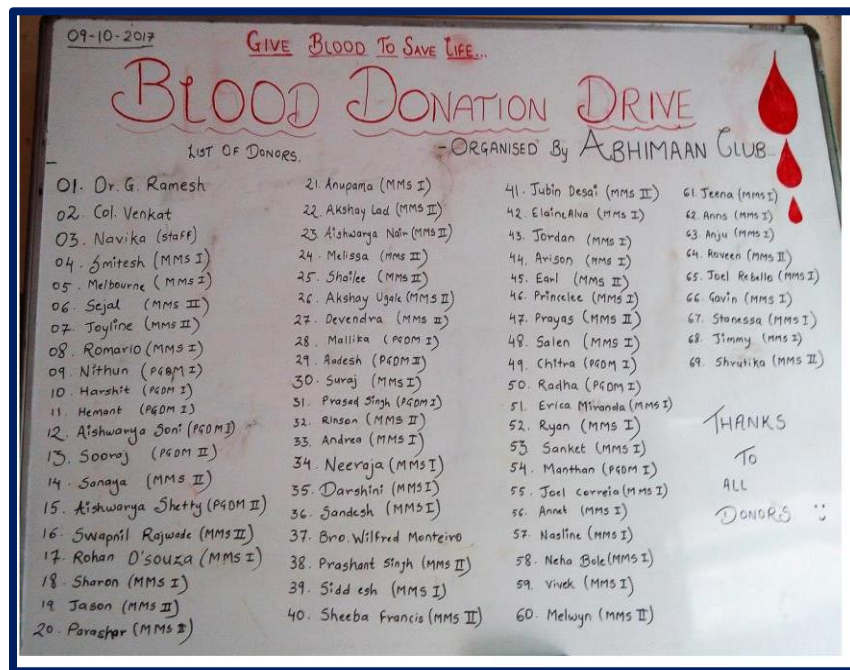 09-10-2017
GIVE BLOOD TO SAVE LIFE...
BLOOD DONATION DRIVE
LIST OF DONORS.
- ORGANISED By ABHIMAAN CLUB
01. Dr. G. Ramesh
02. Col. Venkat
03. Navika (staff)
04. Smitesh (MMS I)
05. Melbourne (MMS I)
06. Sejal (MMS II)
07. Joyline (MMS II)
08. Romario (MMS I)
09. Nithun (PGDM I)
10. Harshit (PGDM I)
11. Hemant (PGDM I)
12. Aishwarya Soni (PGDM I)
13. Sooraj (PGDM II)
14. Sanaya (MMS II)
15. Aishwarya Shetty (PGDM II)
16. Swapnil Rajwade (MMS II)
17. Rohan D'souza (MMS I)
18. Sharon (MMS I)
19 Jason (MMS II)
20. Parashar (MMS II)
21. Anupama (MMS I)
22. Akshay Lad (MMS II)
23. Aishwarya Nair (MMS II)
24. Melissa (MMS II)
25. Shailee (MMS II)
26. Akshay Ugale (MMS II)
27. Devendra (MMS II)
28. Mallika (PGDM I)
29. Aadesh (PGDM II)
30. Suraj (MMS I)
31. Prasad Singh (PGDM I)
32. Rinson (MMS II)
33. Andrea (MMS I)
34. Neeraja (MMS I)
35. Darshini (MMS I)
36. Sandesh (MMS I)
37. Bro. Wilfred Monteiro
38. Prashant Singh (MMS II)
39. Siddesh (MMS I)
40. Sheeba Francis (MMS II)
41. Jubin Desai (MMS II)
42. Elaine Alva (MMS I)
43. Jordan (MMS I)
44. Arison (MMS I)
45. Earl (MMS II)
46. Princelee (MMS I)
47. Prayas (MMS II)
48. Salen (MMS I)
49. Chitra (PGDM I)
50. Radha (PGDM I)
51. Erica Miranda (MMS I)
52. Ryan (MMS I)
53. Sanket (MMS I)
54. Manthan (PGDM I)
55. Joel Correia (MMS I)
56. Annet (MMS I)
57. Nasline (MMS I)
58. Neha Bole (MMS I)
59. Vivek (MMS I)
60. Melwyn (MMS II)
61. Jeena (MMS I)
62. Anns (MMS I)
63. Anju (MMS I)
64. Raveen (MMS II)
65. Joel Rebello (MMS I)
66. Gavin (MMS I)
67. Stanessa (MMS I)
68. Jimmy (MMS I)
69. Shrutika (MMS II)
THANKS
TO
ALL
DONORS